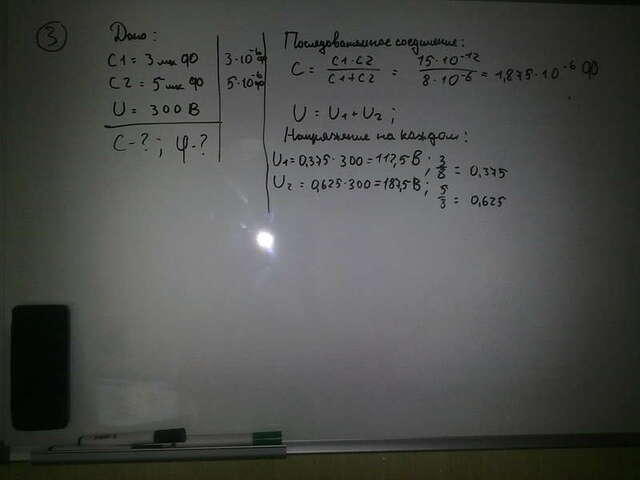 3
Дано:
C1 = 3 мк Ф
3·10⁻⁶ Ф
C2 = 5 мк Ф
5·10⁻⁶ Ф
U = 300 В
C-?; φ-?
Последовательное соединение:
C = C1·C2 / C1+C2 = 15·10⁻¹² / 8·10⁻⁶ = 1,875·10⁻⁶ Ф
U = U1 + U2;
Напряжение на каждом:
U1 = 0,375·300 = 112,5 В; 3/8 = 0,375
U2 = 0,625·300 = 187,5 В; 5/8 = 0,625